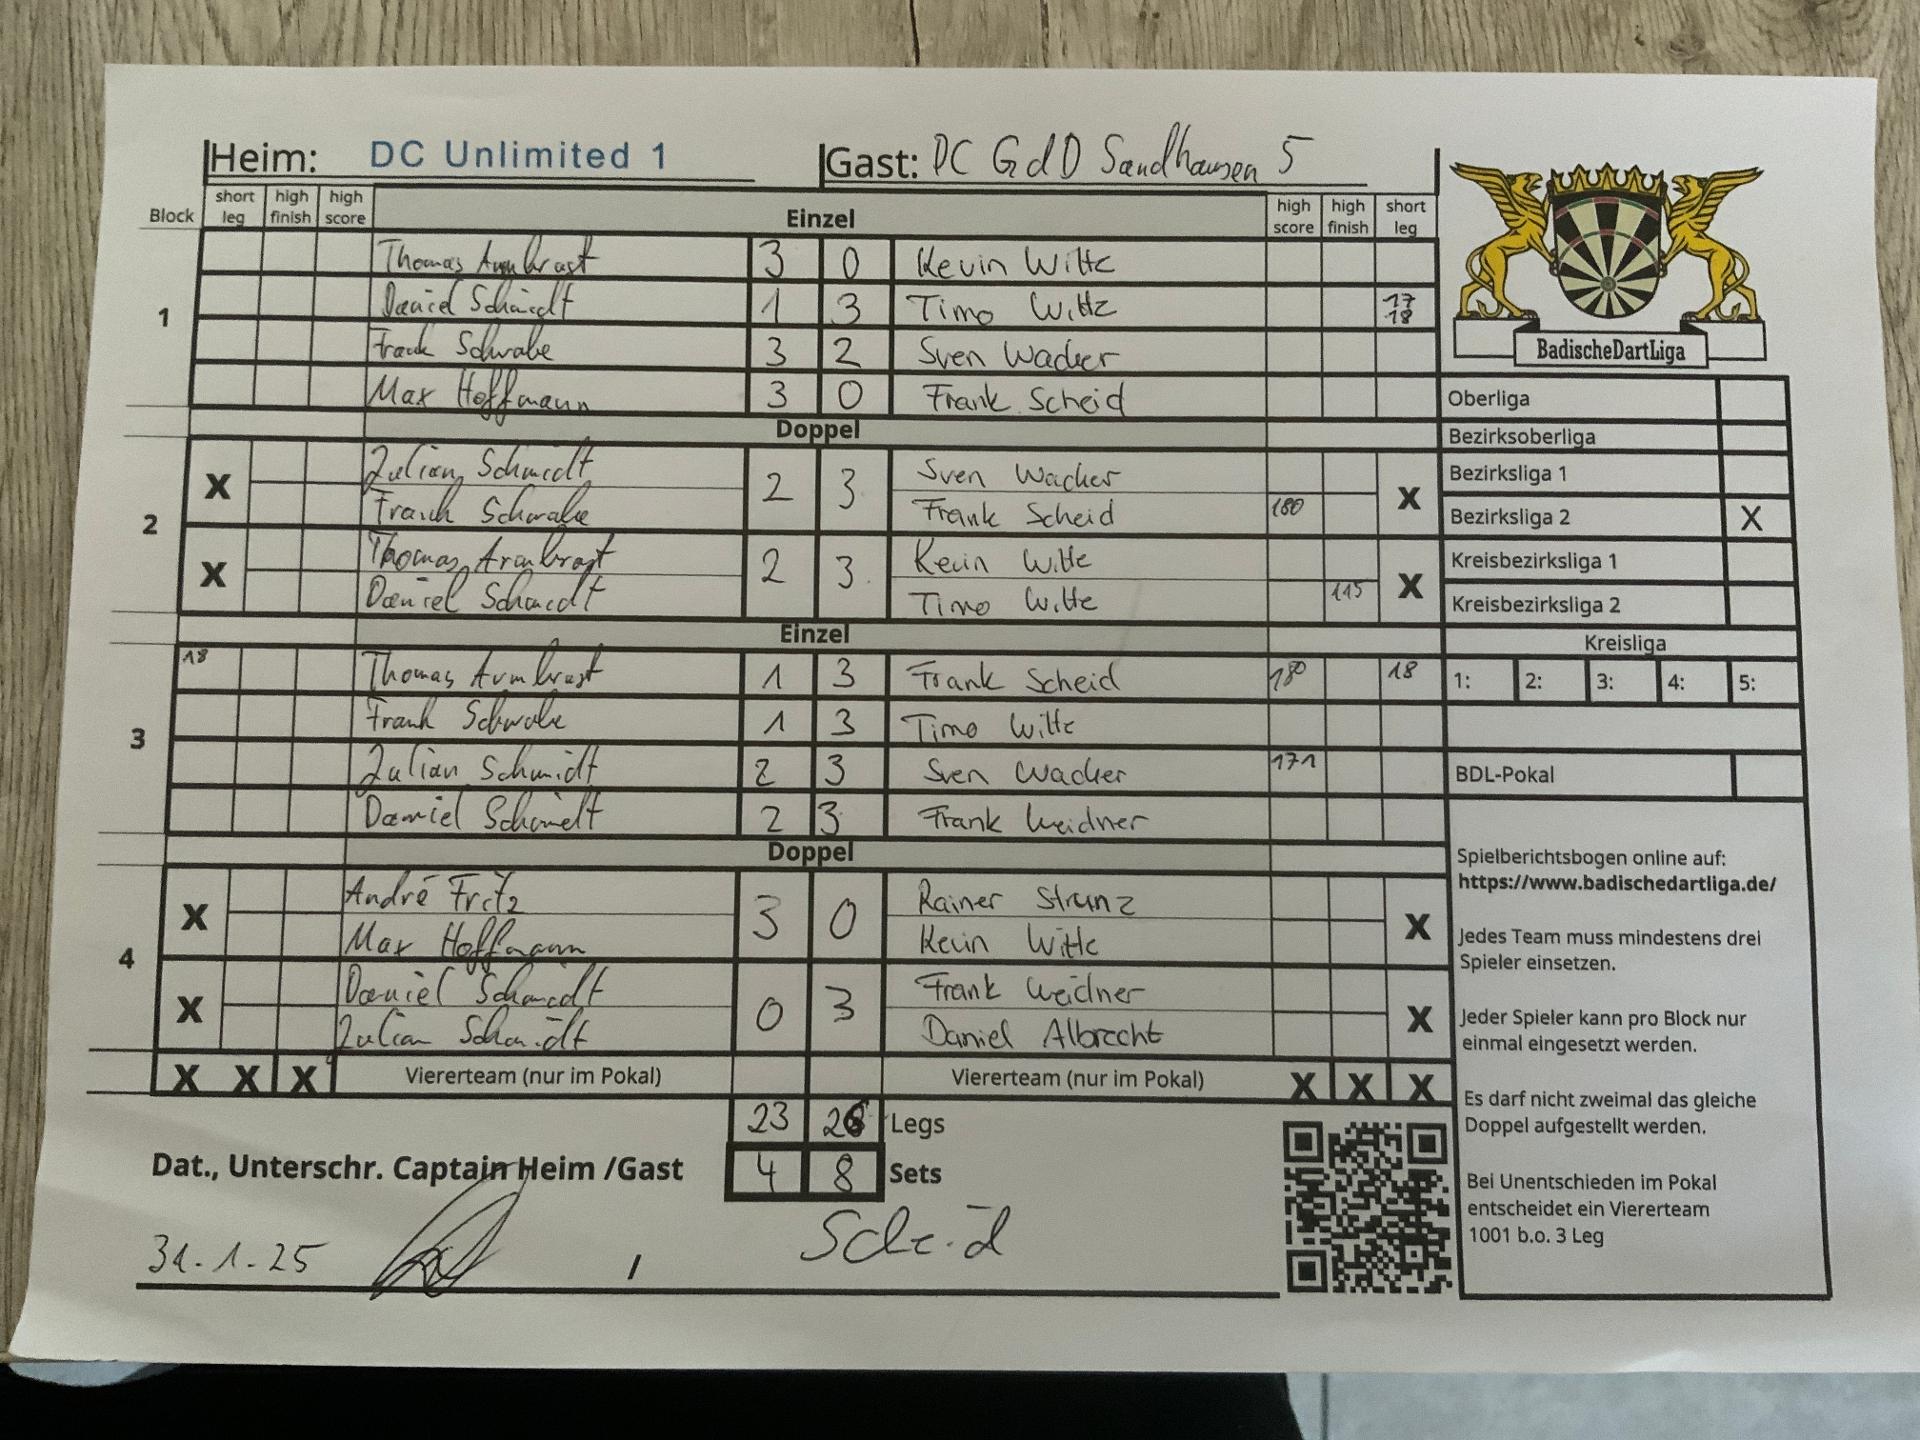 Heim: DC Unlimited 1 Gast: DC GdD Sandhausen 5
Block short leg high finish high score Einzel high score high finish short leg
1
Thomas Armbrust 3 0 Kevin Witte
Daniel Schmidt 1 3 Timo Witte 17 18
Frank Schwabe 3 2 Sven Wacker
Max Hoffmann 3 0 Frank Scheid
Doppel
2
X Julian Schmidt 2 3 Sven Wacker X
Frank Schwabe Frank Scheid 180
X Thomas Armbrust 2 3 Kevin Witte X
Daniel Schmidt Timo Witte 115
Einzel
3
18 Thomas Armbrust 1 3 Frank Scheid 180 18
Frank Schwabe 1 3 Timo Witte
Julian Schmidt 2 3 Sven Wacker 171
Daniel Schmidt 2 3 Frank Weidner
Doppel
4
X André Fritz 3 0 Rainer Strunz X
Max Hoffmann Kevin Witte
X Daniel Schmidt 0 3 Frank Weidner X
Julian Schmidt Daniel Albrecht
X X X Viererteam (nur im Pokal) Viererteam (nur im Pokal) X X X
23 26 Legs
4 8 Sets
Dat., Unterschr. Captain Heim /Gast
31.1.25 / Scheid
BadischeDartLiga
Oberliga
Bezirksoberliga
Bezirksliga 1
Bezirksliga 2 X
Kreisbezirksliga 1
Kreisbezirksliga 2
Kreisliga
1: 2: 3: 4: 5:
BDL-Pokal
Spielberichtsbogen online auf:
https://www.badischedartliga.de/
Jedes Team muss mindestens drei
Spieler einsetzen.
Jeder Spieler kann pro Block nur
einmal eingesetzt werden.
Es darf nicht zweimal das gleiche
Doppel aufgestellt werden.
Bei Unentschieden im Pokal
entscheidet ein Viererteam
1001 b.o. 3 Leg